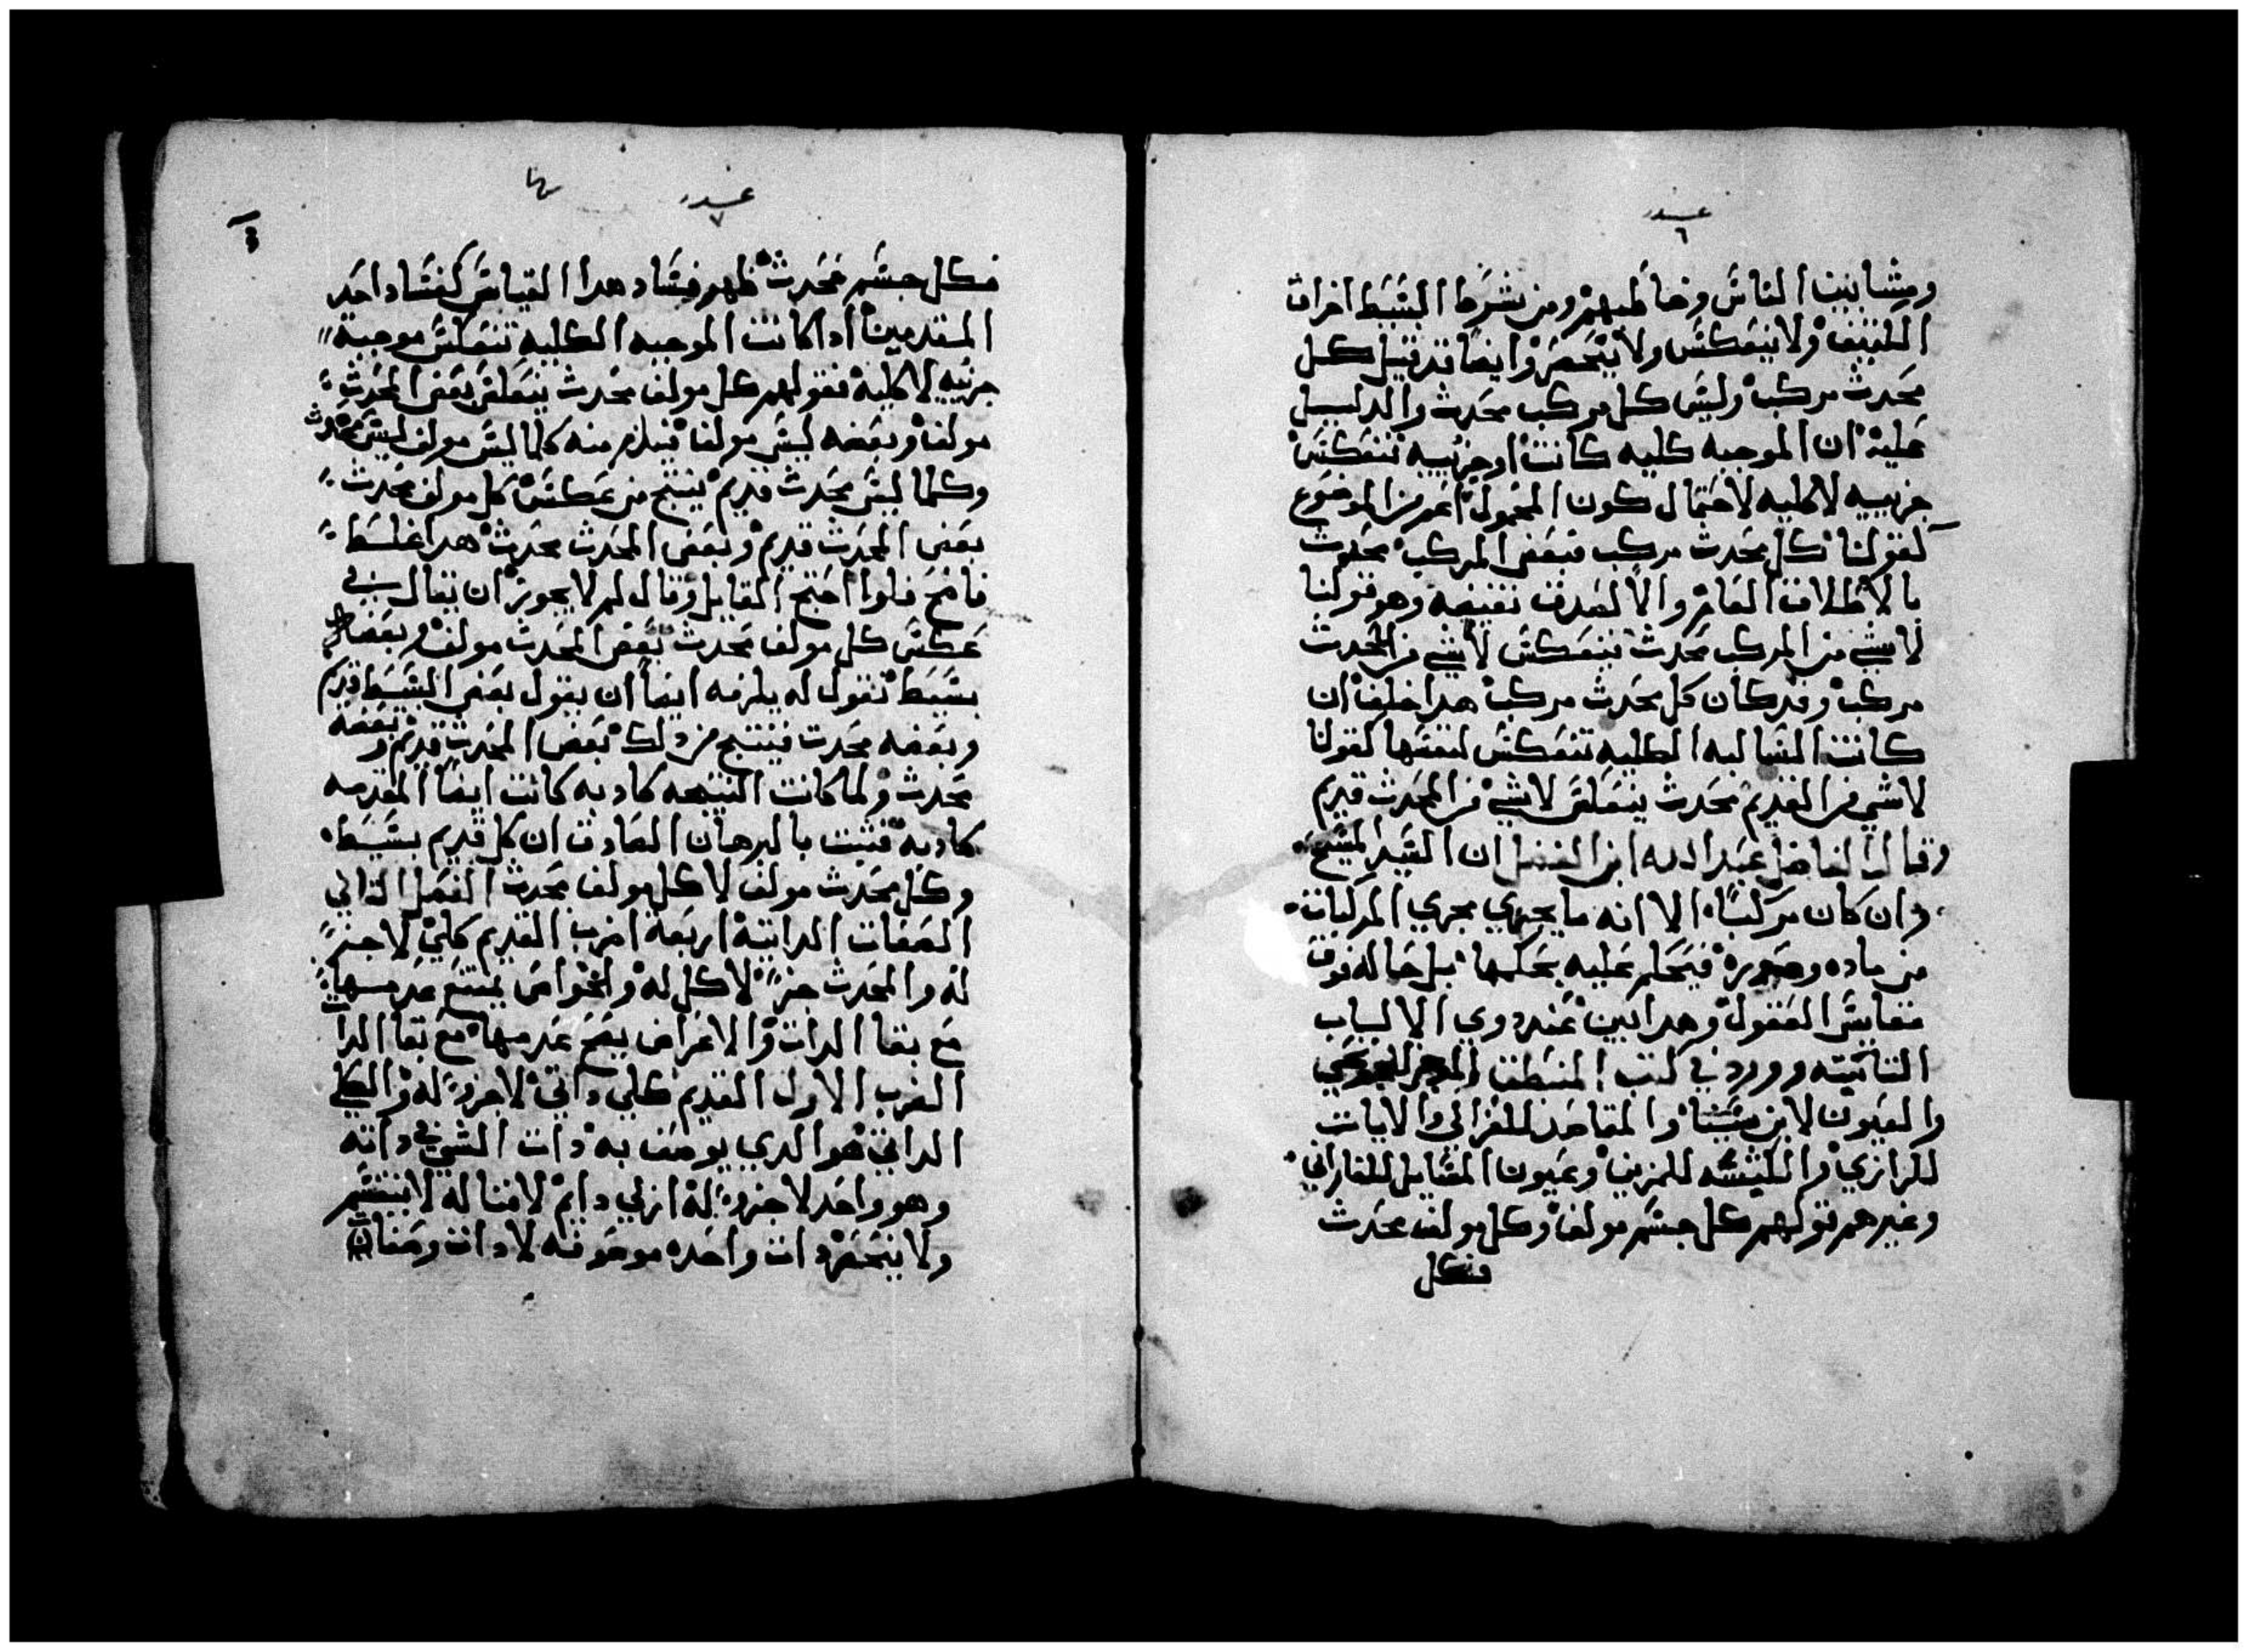 عدد
٦
ومشابيت الناس وخاطبهم ومن شرط البسيط اخراق
الكثيف ولا ينعكس ولا ينحصر وايضا قد قيل كل
محدث مركب وليس كل مركب محدث والدليل
عليه ان الموجبه كليه كانت او جزييه تنعكس
جزييه لا كليه لاحتمال كون المحمول اعم من الموضوع
كقولنا كل محدث مركب فبعض المركب محدث
بالاطلاق العام والا لصدق نقيضه وهو قولنا
لا شي من المركب محدث ينعكس لا شي من المحدث
مركب وقد كان كل محدث مركب هدا خلف ان
كانت السالبه الكليه تنعكس لنفسها كقولنا
لا شي من القديم محدث ينعكس لا شي من المحدث قديم
وقال الفاضل عبد الله ابن الفضل ان السيد المسيح
وان كان مركبا الا انه ما يجري مجري المركبات
من ماده وصوره فيحكم عليه بحكمها بل حاله فوق
مقايس العقول وهدا بين عند دوي الالباب
التاقبته وورد في كتب المنطق
والعيون لابن سينا والمقاصد للغزالي والايات
للرازي والكيشه للمزين وعيون المسايل للفارابي
وغيرهم قولهم كل جسم مولف وكل مولف محدث
فكل
عدد
٧
فكل جسم محدث ظهر فساد هدا القياس كفساد احد
المقدمين ادا كانت الموجبه الكليه تنعكس موجبه
جزييه لا كليه فقولهم كل مولف محدث ينعكس بعض المحدث
مولف وبعضه ليس مولف فيلزم منه كلما ليس مولف ليس محدث
وكلما ليس محدث قديم ينتج من عكس كل مولف محدث
بعض المحدث قديم وبعض المحدث محدث هدا غلط
فاضح فلوا احتج القايل وقال لم لا يجوز ان يقال في
عكس كل مولف محدث بعض المحدث مولف وبعضه
بسيط نقول له يلزمه ايضا ان يقول بعض البسيط قديم
وبعضه محدث فينتج من دلك بعض المحدث قديم وبعضه
محدث ولما كانت النتيجه كادبه كانت ايضا المقدمه
كادبه فثبت بالبرهان الصادق ان كل قديم بسيط
وكل محدث مولف لا كل مولف محدث الفصل الثاني
الصفات الداتيه اربعة اضرب القديم كلي لا جز
له والمحدث جز لا كل له والخواص يمتنع عدمها
مع بقا الدات والاعراض يصح عدمها مع بقا الدات
الضرب الاول القديم كلي داتي لا جزو له والكلي
الداتي هو الدي يوصف به دات الشي في داته
وهو واحد لا جزو له ازلي دايم لا فنا له لا ينقسم
ولا ينحصر دات واحده موصوفه لا دات وصفات